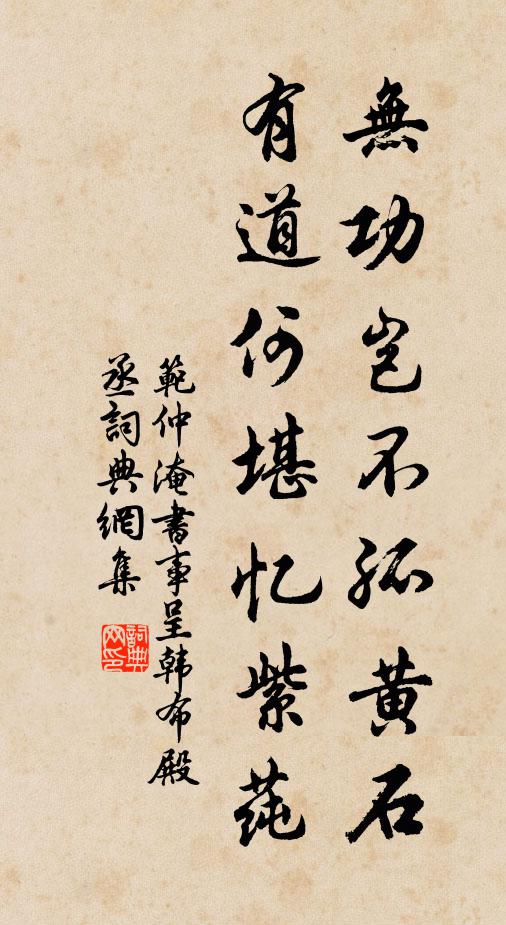 無功岂不孤黄石
有道何堪忆紫莼
範仲淹書事呈韩布殿
丞詞典網集
詞典网印